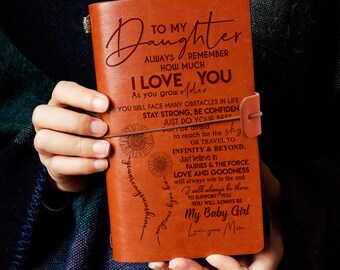 TO MY
Daughter
ALWAYS REMEMBER
HOW MUCH
I LOVE YOU
As you grow older
YOU WILL FACE MANY OBSTACLES IN LIFE
STAY STRONG, BE CONFIDEN
JUST DO YOUR BEST
be afraid
to reach for the sky
OR TRAVEL TO
INFINITY & BEYOND.
Just believe in
FAIRIES & THE FORCE,
LOVE AND GOODNESS
will always win in the end.
I will always be there
TO SUPPORT YOU
YOU WILL ALWAYS BE
My Baby Girl
Love, your Mom